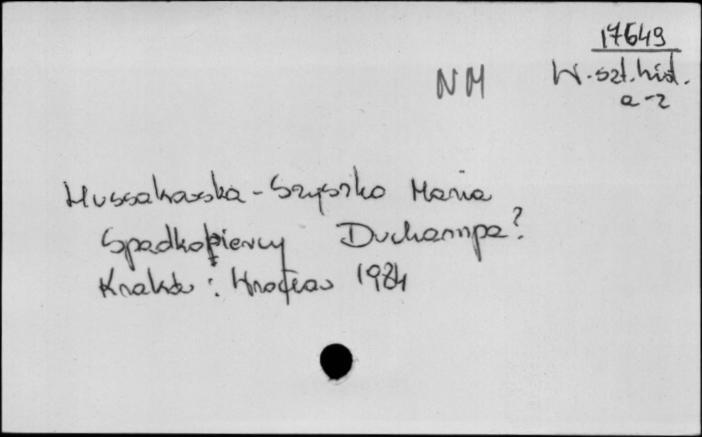 17649
W-szt.hist.
a-z
NM
Hussakowska-Szyszko Maria
Spadkobiercy Duchampa?
Kraków: Wrocław 1984